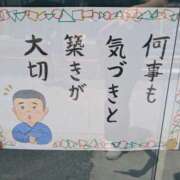 何事も
気づきと
築きが
大切